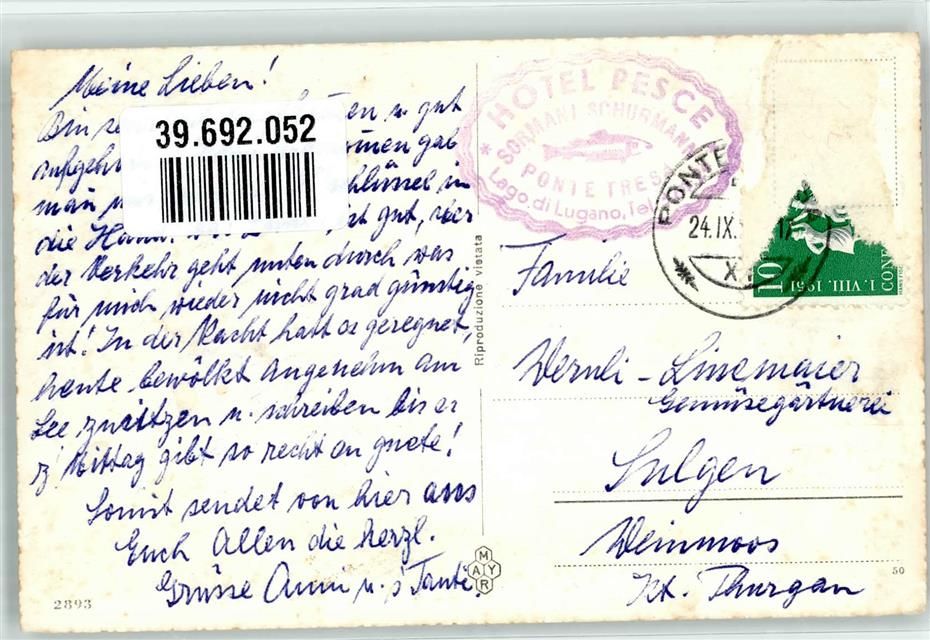 Meine Lieben!
39.692.052
Bin en u. gut
aufgeh gab
man hlüssel in
die Hand. ist gut, aber
der Verkehr geht unten durch was
für mich wieder nicht grad günstig
ist! In der Nacht hatt es geregnet,
heute bewölkt angenehm am
See zu sitzen u. schreiben bis er
z' Mittag gibt so recht en guete!
Somit sendet von hier aus
Euch Allen die herzl.
Grüsse Anni u. s' Tanti.
2893
HOTEL PESCE
* SORMANI SCHURMANN
PONTE TRESA
Lago di Lugano, Tel
PONTE
24.IX.
X
10
1. VIII. 1951
CONF
Riproduzione vietata
Familie
Wernli - Linemaier
Gemüsegärtnerei
Sulgen
Weinmoos
Kt. Thurgau
MAYR
50